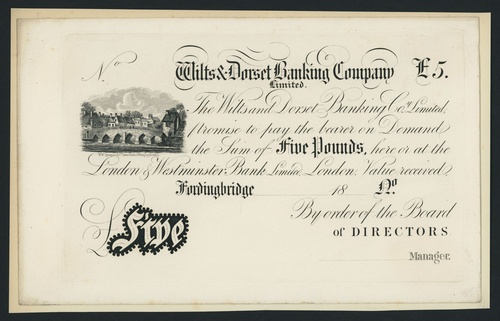 No
Wilts & Dorset Banking Company £5.
Limited.
The Wilts and Dorset Banking Coy. Limited,
promise to pay the bearer on Demand
the Sum of Five Pounds, here or at the
London & Westminster Bank Limited London. Value received
Fordingbridge 18 No
By order of the Board
£ Five of DIRECTORS
Manager.